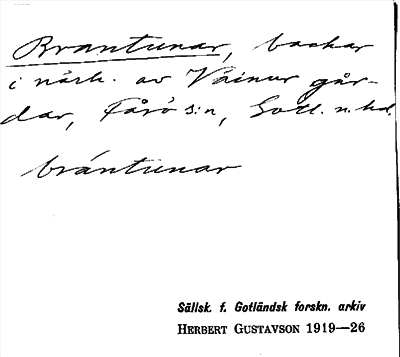 Brantunar, backar
i närh. av Vainur går-
dar, Fårö s:n, Gotl. n. hd.
brántunar
Sällsk. f. Gotländsk forskn. arkiv
HERBERT GUSTAVSON 1919—26